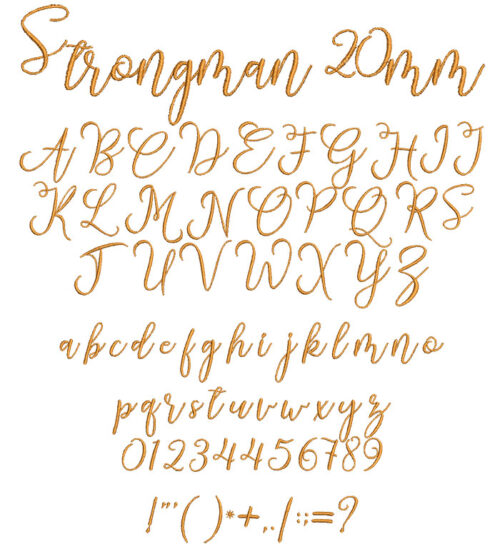 Strongman 20mm
ABCDEFGHIJ
KLMNOPQRS
TUVWXYZ
abcdefghijklmno
pqrstuvwxyz
01234456789
!"'()*+,./:;=?